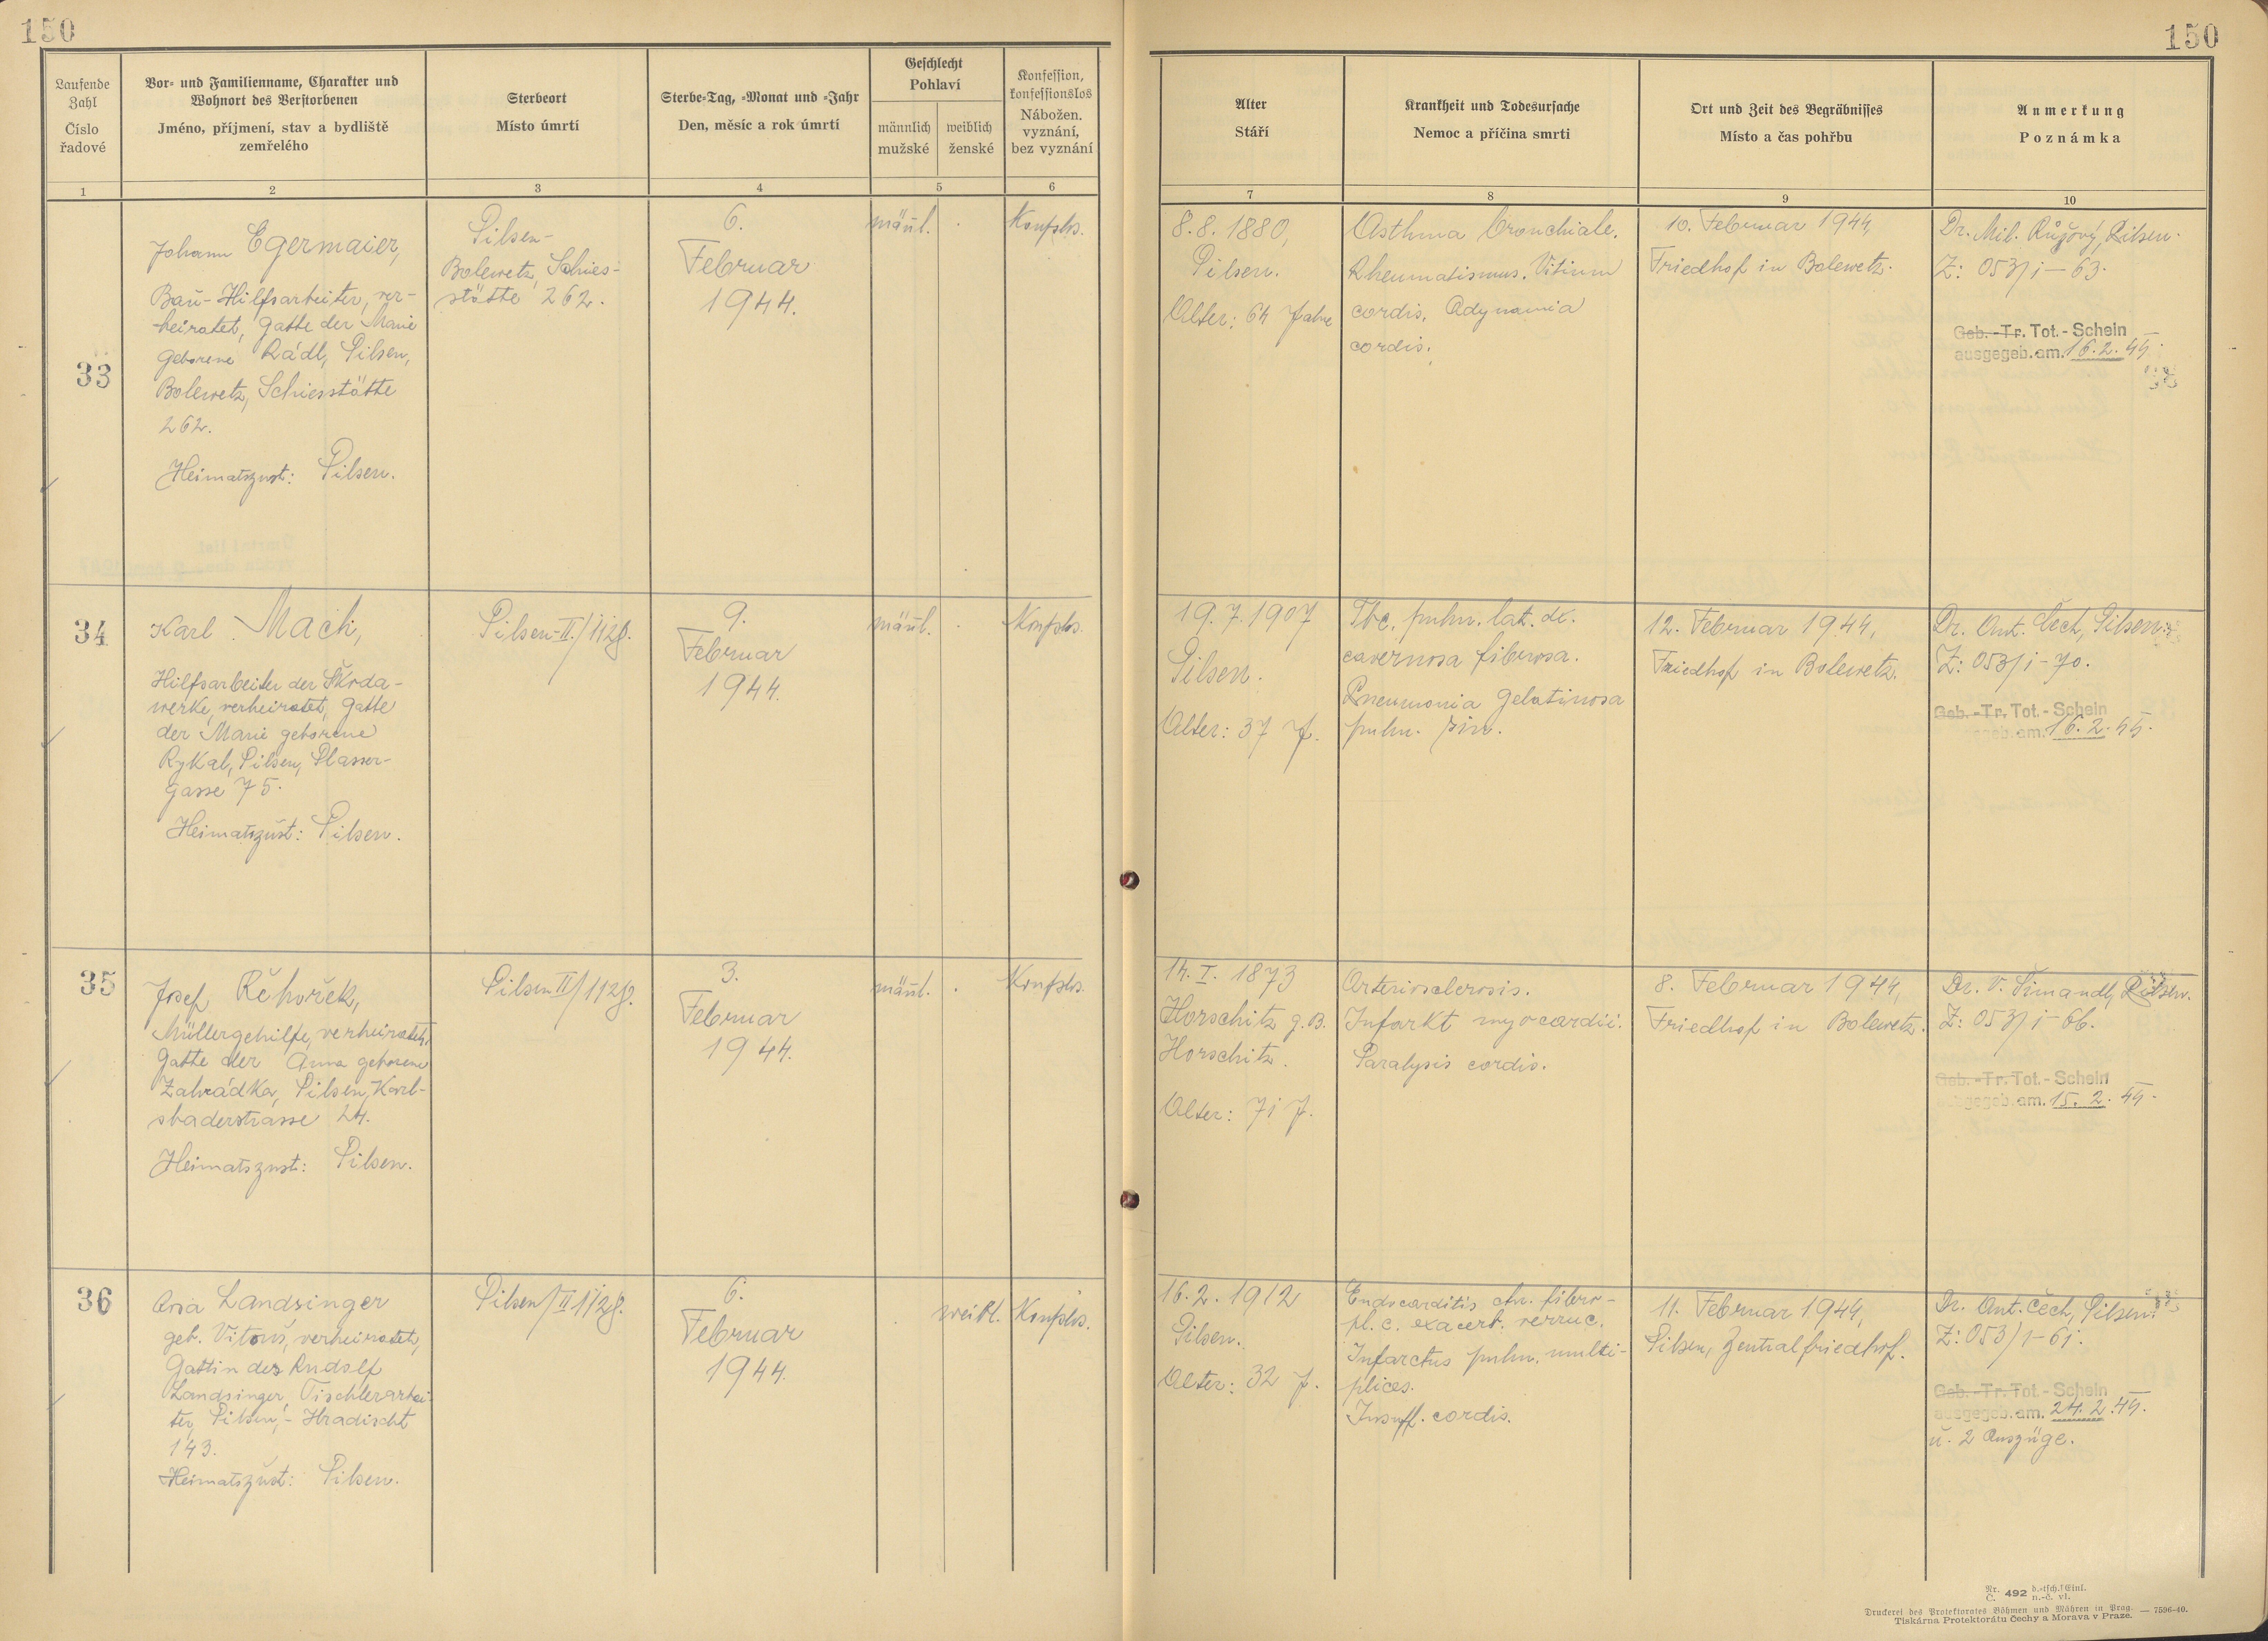 150
150
Laufende
Zahl
Číslo
řadové
Vor- und Familienname, Charakter und
Wohnort des Verstorbenen
Jméno, příjmení, stav a bydliště
zemřelého
Sterbeort
Místo úmrtí
Sterbe-Tag, -Monat und -Jahr
Den, měsíc a rok úmrtí
Geschlecht
Pohlaví
männlich
mužské
weiblich
ženské
Konfession,
konfessionslos
Nábožen.
vyznání,
bez vyznání
Alter
Stáří
Krankheit und Todesursache
Nemoc a příčina smrti
Ort und Zeit des Begräbnisses
Místo a čas pohřbu
Anmerkung
Poznámka
1
2
3
4
5
6
7
8
9
10
33
Johann Egermaier,
Bau-Hilfsarbeiter, ver-
heiratet, Gatte der Marie
geborene Rádl, Pilsen,
Bolewetz, Schiesstätte
262.
Heimatszust: Pilsen.
Pilsen-
Bolewetz, Schies-
stätte 262.
6.
Februar
1944.
männl.
Konfslos.
8.8.1880,
Pilsen.
Alter: 64 Jahre
Asthma bronchiale.
Rheumatismus. Vitium
cordis. Adynamia
cordis.
10. Februar 1944,
Friedhof in Bolewetz.
Dr. Mil. Růžový, Pilsen.
Z: 053/1-63.
Geb.-Tr. Tot.-Schein
ausgegeb. am. 16.2.44.
34
Karl Mach,
Hilfsarbeiter der Škoda-
werke, verheiratet, Gatte
der Marie geborene
Rykal, Pilsen, Plasser-
gasse 75.
Heimatszust: Pilsen.
Pilsen-II/1128.
9.
Februar
1944.
männl.
Konfslos.
19.7.1907
Pilsen.
Alter: 37 J.
Tbc. pulm. lat. dx.
cavernosa fibrosa.
Pneumonia gelatinosa
pulm. sin.
12. Februar 1944,
Friedhof in Bolewetz.
Dr. Ant. Čech, Pilsen.
Z: 053/1-70.
Geb.-Tr. Tot.-Schein
ausgegeb. am. 16.2.44.
35
Josef Řehořek,
Müllergehilfe, verheiratet,
Gatte der Anna geborene
Zahrádka, Pilsen, Karl-
sbaderstrasse 24.
Heimatszust: Pilsen.
Pilsen II/1128.
3.
Februar
1944.
männl.
Konfslos.
14.I.1873
Horschitz g.B.
Horschitz.
Alter: 71 J.
Arteriosclerosis.
Infarkt myocardii.
Paralysis cordis.
8. Februar 1944,
Friedhof in Bolewetz.
Dr. V. Šimandl, Pilsen.
Z: 053/1-66.
Geb.-Tr. Tot.-Schein
ausgegeb. am. 15.2.44.
36
Landsinger
geb. Vitouš, verheiratet,
Gattin des Rudolf
Landsinger, Tischlerarbei-
ter, Pilsen,-Hradischt
143.
Heimatszust: Pilsen.
Pilsen/II 1128.
6.
Februar
1944.
weibl.
Konfslos.
16.2.1912
Pilsen.
Alter: 32 J.
Endocarditis chr. fibro-
pl. c. exacerb. verruc.
Infarctus pulm. multi-
plices.
Insuff. cordis.
11. Februar 1944,
Pilsen, Zentralfriedhof.
Dr. Ant. Čech, Pilsen.
Z: 053/1-61.
Geb.-Tr. Tot.-Schein
ausgegeb. am. 24.2.44.
u. 2 Auszüge.
Nr. 492 d.-tsch. Einl.
Č. n.-č. vl.
Druckerei des Protektorates Böhmen und Mähren in Prag. — 7596-40.
Tiskárna Protektorátu Čechy a Morava v Praze.